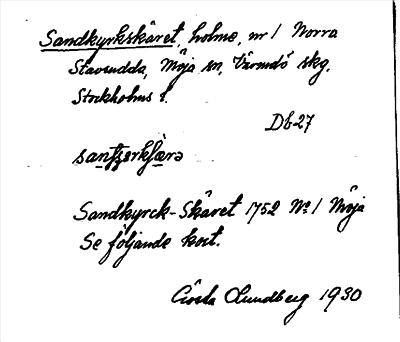 Sandkyrkskäret, holme, nr 1 Norra
Stavsudda, Möja sn, Värmdö skg.
Stockholms l.
Db27
Sandkyrck-Skäret 1752 No 1 Möja
Se följande kort.
Gösta Lundberg 1930